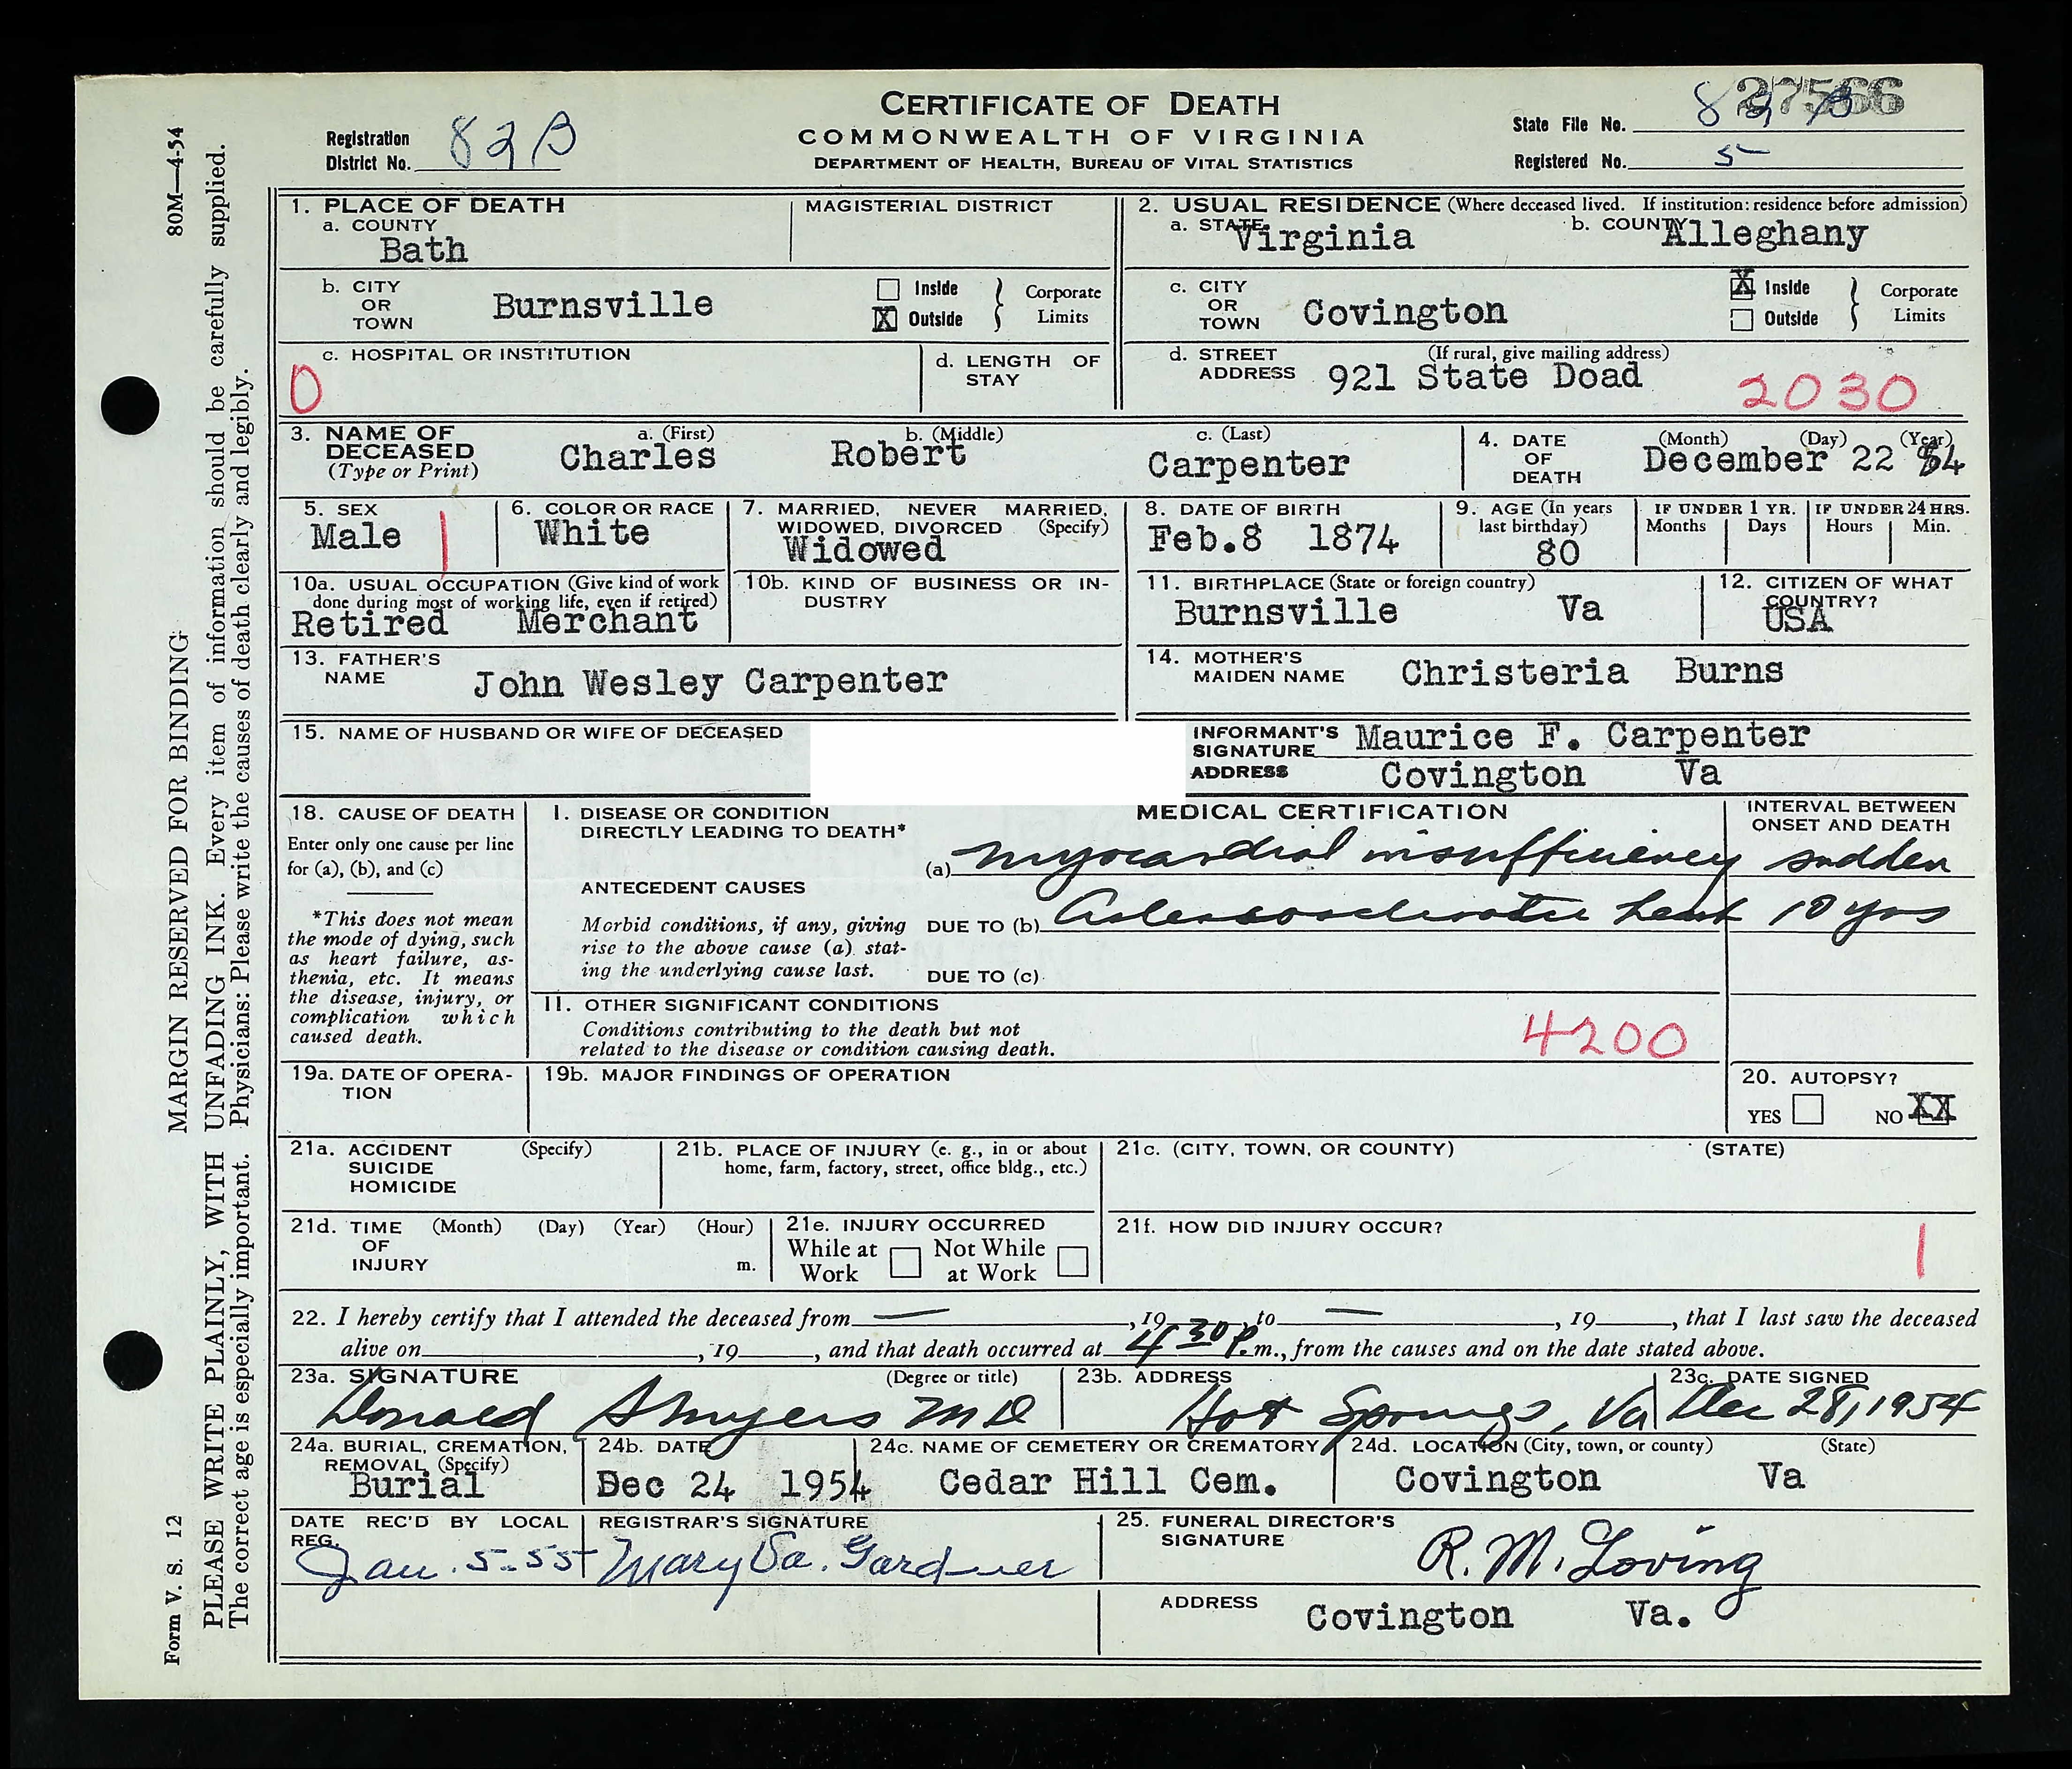 80M—4-54
MARGIN RESERVED FOR BINDING
PLEASE WRITE PLAINLY, WITH UNFADING INK. Every item of information should be carefully supplied.
The correct age is especially important. Physicians: Please write the causes of death clearly and legibly.
Form V. S. 12
CERTIFICATE OF DEATH
COMMONWEALTH OF VIRGINIA
DEPARTMENT OF HEALTH, BUREAU OF VITAL STATISTICS
Registration
District No. 82B
27566
State File No. 82 B
Registered No. 5
1. PLACE OF DEATH
a. COUNTY
Bath
MAGISTERIAL DISTRICT
2. USUAL RESIDENCE (Where deceased lived. If institution: residence before admission)
a. STATE Virginia
b. COUNTY Alleghany
b. CITY
OR
TOWN
Burnsville
Inside
X Outside
Corporate
Limits
c. CITY
OR
TOWN
Covington
X Inside
Outside
Corporate
Limits
c. HOSPITAL OR INSTITUTION
0
d. LENGTH OF
STAY
d. STREET
ADDRESS
(If rural, give mailing address)
921 State Doad
2030
3. NAME OF
DECEASED
(Type or Print)
a. (First)
Charles
b. (Middle)
Robert
c. (Last)
Carpenter
4. DATE
OF
DEATH
(Month) (Day) (Year)
December 22 54
5. SEX
Male
1
6. COLOR OR RACE
White
7. MARRIED, NEVER MARRIED,
WIDOWED, DIVORCED (Specify)
Widowed
8. DATE OF BIRTH
Feb.8 1874
9. AGE (In years
last birthday)
80
IF UNDER 1 YR.
Months Days
IF UNDER 24 HRS.
Hours Min.
10a. USUAL OCCUPATION (Give kind of work
done during most of working life, even if retired)
Retired Merchant
10b. KIND OF BUSINESS OR IN-
DUSTRY
11. BIRTHPLACE (State or foreign country)
Burnsville Va
12. CITIZEN OF WHAT
COUNTRY?
USA
13. FATHER'S
NAME
John Wesley Carpenter
14. MOTHER'S
MAIDEN NAME
Christeria Burns
15. NAME OF HUSBAND OR WIFE OF DECEASED
INFORMANT'S
SIGNATURE Maurice F. Carpenter
ADDRESS Covington Va
18. CAUSE OF DEATH
Enter only one cause per line
for (a), (b), and (c)
*This does not mean
the mode of dying, such
as heart failure, as-
thenia, etc. It means
the disease, injury, or
complication which
caused death.
MEDICAL CERTIFICATION
INTERVAL BETWEEN
ONSET AND DEATH
I. DISEASE OR CONDITION
DIRECTLY LEADING TO DEATH*
(a) myocardial insufficiency sudden
ANTECEDENT CAUSES
Morbid conditions, if any, giving
rise to the above cause (a) stat-
ing the underlying cause last.
DUE TO (b) heart 10 yrs
DUE TO (c)
II. OTHER SIGNIFICANT CONDITIONS
Conditions contributing to the death but not
related to the disease or condition causing death.
4200
19a. DATE OF OPERA-
TION
19b. MAJOR FINDINGS OF OPERATION
20. AUTOPSY?
YES NO XX
21a. ACCIDENT
SUICIDE
HOMICIDE
(Specify)
21b. PLACE OF INJURY (e. g., in or about
home, farm, factory, street, office bldg., etc.)
21c. (CITY, TOWN, OR COUNTY) (STATE)
21d. TIME
OF
INJURY
(Month) (Day) (Year) (Hour)
m.
21e. INJURY OCCURRED
While at
Work
Not While
at Work
21f. HOW DID INJURY OCCUR?
1
22. I hereby certify that I attended the deceased from — , 19 , to — , 19 , that I last saw the deceased
alive on , 19 , and that death occurred at 4 30 p.m., from the causes and on the date stated above.
23a. SIGNATURE (Degree or title)
Donald S Myers MD
23b. ADDRESS
Hot Springs, Va
23c. DATE SIGNED
Dec 28, 1954
24a. BURIAL, CREMATION,
REMOVAL (Specify)
Burial
24b. DATE
Dec 24 1954
24c. NAME OF CEMETERY OR CREMATORY
Cedar Hill Cem.
24d. LOCATION (City, town, or county) (State)
Covington Va
DATE REC'D BY LOCAL
REG.
Jan. 5-55
REGISTRAR'S SIGNATURE
Mary Va. Gardner
25. FUNERAL DIRECTOR'S
SIGNATURE
R. M. Loving
ADDRESS
Covington Va.